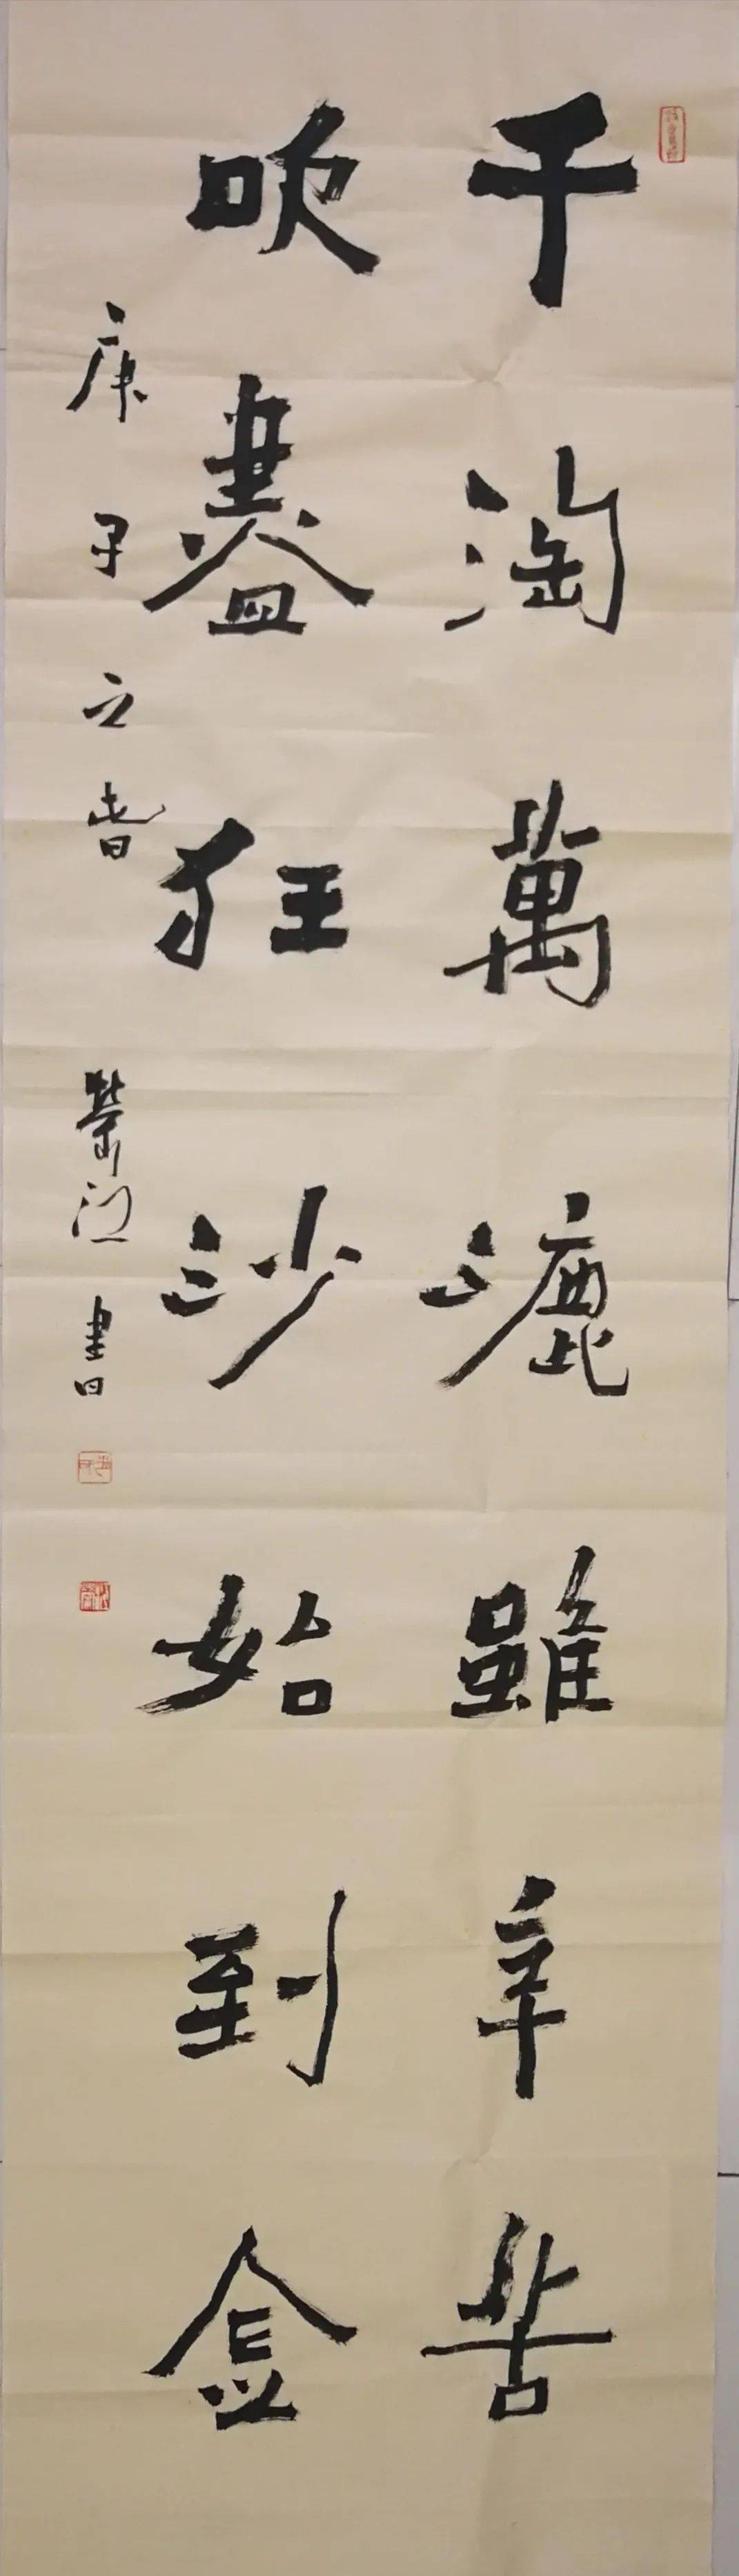 千淘萬漉雖辛苦
吹盡狂沙始到金
庚子之春 书